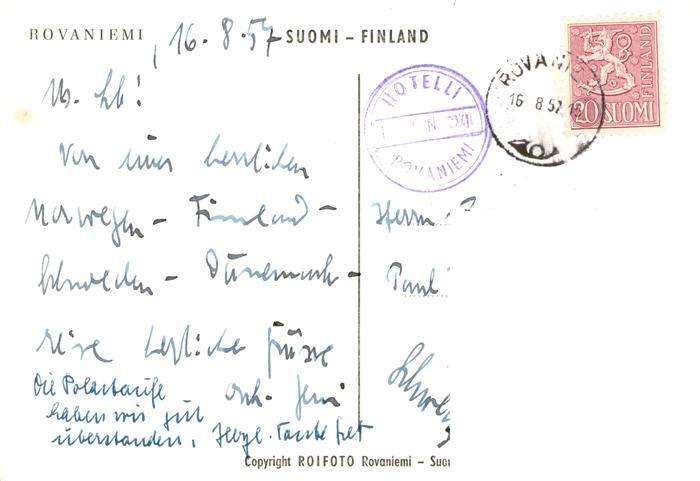 ROVANIEMI, 16.8.57 SUOMI – FINLAND
M. Lb!
Von einer herrlichen
Norwegen – Finnland –
Schweden – Dänemark –
reise herzliche Grüsse
Die Polartaufe
haben wir gut
überstanden. Herzl. Tante
HOTELLI
ROVANIEMI
ROVANIEMI
16 8 57
20 SUOMI
FINLAND
Herrn
Paul
Copyright ROIFOTO Rovaniemi – Suo